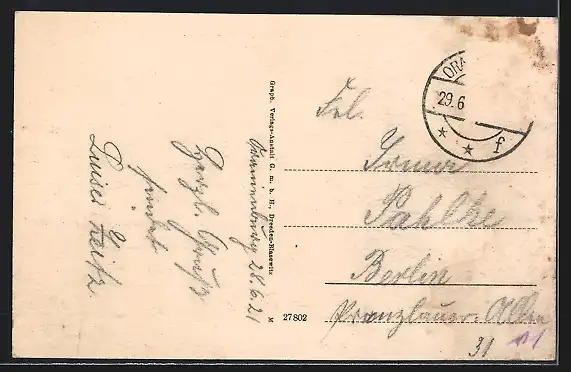 Oranienburg 28.6.21
Herzl. Gruß
sendet
Luise Heitz.
Graph. Verlags-Anstalt G. m. b. H., Dresden-Blasewitz
M 27802
ORA
29.6
* * f
Frl.
Irma
Pahlke
Berlin
Prenzlauer Allee
31